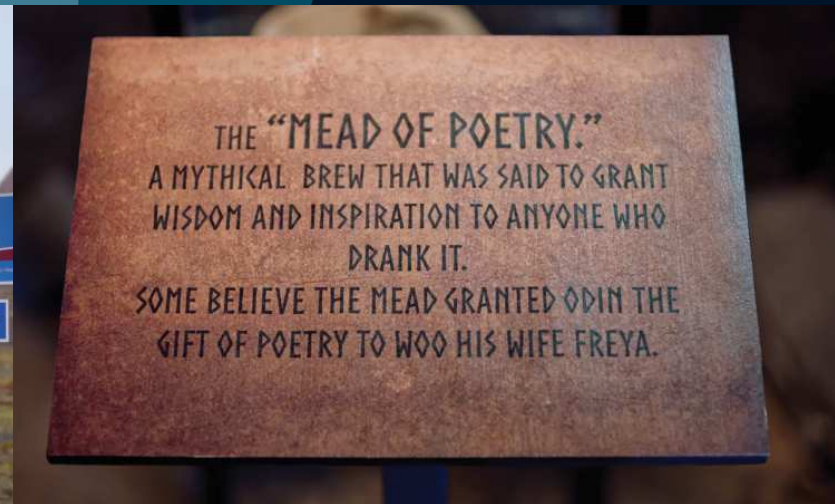 THE “MEAD OF POETRY.”
A MYTHICAL BREW THAT WAS SAID TO GRANT
WISDOM AND INSPIRATION TO ANYONE WHO
DRANK IT.
SOME BELIEVE THE MEAD GRANTED ODIN THE
GIFT OF POETRY TO WOO HIS WIFE FREYA.